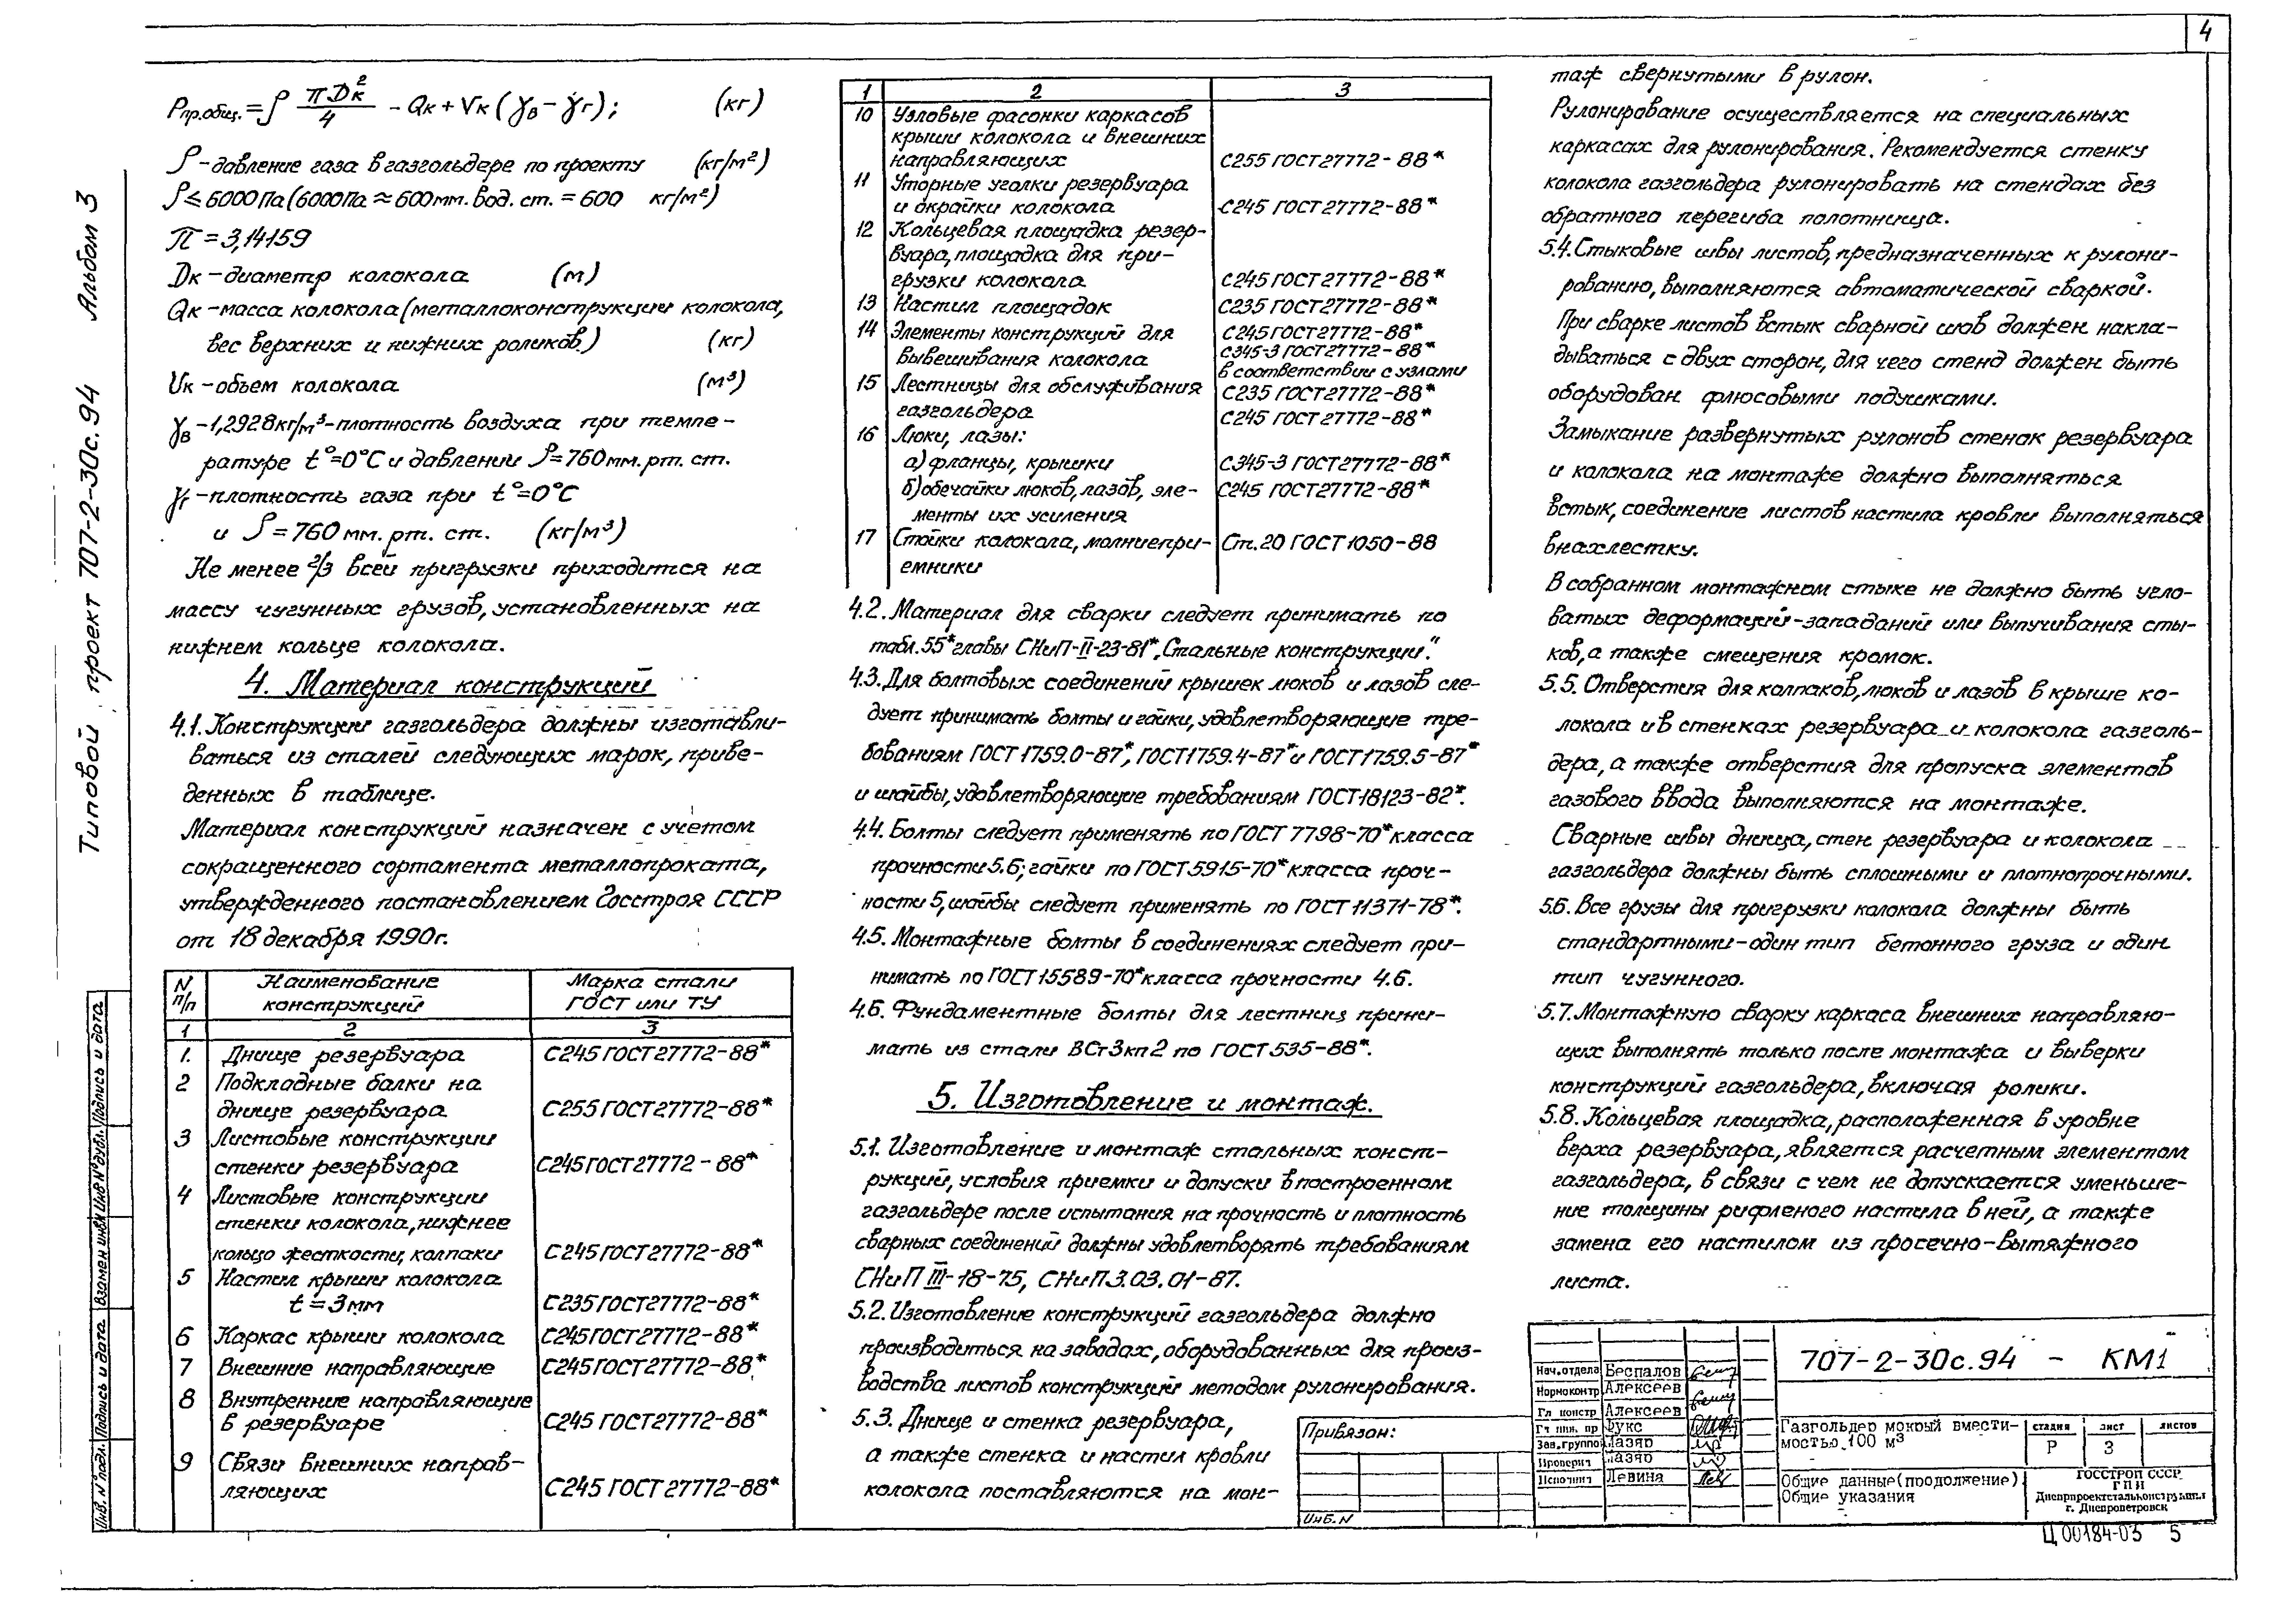 4
Типовой проект 707-2-30с.94 Альбом 3
Pпр.общ. = ρ πDк²/4 - Qк + Vк (γв - γг); (кг)
ρ - давление газа в газгольдере по проекту (кг/м²)
ρ ≤ 6000 Па (6000 Па ≈ 600 мм. вод. ст. = 600 кг/м²)
π = 3,14159
Dк - диаметр колокола (м)
Qк - масса колокола (металлоконструкции колокола,
вес верхних и нижних роликов) (кг)
Vк - объем колокола (м³)
γв - 1,2928 кг/м³ - плотность воздуха при темпе-
ратуре t°=0°С и давлении ρ=760 мм. рт. ст.
γг - плотность газа при t°=0°С
и ρ=760 мм. рт. ст. (кг/м³)
Не менее 2/3 всей пригрузки приходится на
массу чугунных грузов, установленных на
нижнем кольце колокола.
4. Материал конструкций
4.1. Конструкции газгольдера должны изготавли-
ваться из сталей следующих марок, приве-
денных в таблице.
Материал конструкций назначен с учетом
сокращенного сортамента металлопроката,
утвержденного постановлением Госстроя СССР
от 18 декабря 1990г.
N п/п Наименование конструкций Марка стали ГОСТ или ТУ
1 2 3
1. Днище резервуара С245 ГОСТ 27772-88*
2 Подкладные балки на
днище резервуара С255 ГОСТ 27772-88*
3 Листовые конструкции
стенки резервуара С245 ГОСТ 27772-88*
4 Листовые конструкции
стенки колокола, нижнее
кольцо жесткости, колпаки С245 ГОСТ 27772-88*
5 Настил крыши колокола
t=3мм С235 ГОСТ 27772-88*
6 Каркас крыши колокола С245 ГОСТ 27772-88*
7 Внешние направляющие С245 ГОСТ 27772-88*
8 Внутренние направляющие
в резервуаре С245 ГОСТ 27772-88*
9 Связи внешних направ-
ляющих С245 ГОСТ 27772-88*
1 2 3
10 Узловые фасонки каркасов
крыши колокола и внешних
направляющих С255 ГОСТ 27772-88*
11 Уторные уголки резервуара
и окрайки колокола С245 ГОСТ 27772-88*
12 Кольцевая площадка резер-
вуара, площадка для при-
грузки колокола С245 ГОСТ 27772-88*
13 Настил площадок С235 ГОСТ 27772-88*
14 Элементы конструкций для С245 ГОСТ 27772-88*
вывешивания колокола С345-3 ГОСТ 27772-88*
в соответствии с узлами
15 Лестницы для обслуживания С235 ГОСТ 27772-88*
газгольдера С245 ГОСТ 27772-88*
16 Люки, лазы:
а) фланцы, крышки С345-3 ГОСТ 27772-88*
б) обечайки люков, лазов, эле- С245 ГОСТ 27772-88*
менты их усиления
17 Стойки колокола, молниепри- Ст.20 ГОСТ 1050-88
емники
4.2. Материал для сварки следует принимать по
табл. 55* главы СНиП-II-23-81* „Стальные конструкции."
4.3. Для болтовых соединений крышек люков и лазов сле-
дует принимать болты и гайки, удовлетворяющие тре-
бованиям ГОСТ 1759.0-87*, ГОСТ 1759.4-87* и ГОСТ 1759.5-87*
и шайбы, удовлетворяющие требованиям ГОСТ 18123-82*.
4.4. Болты следует применять по ГОСТ 7798-70* класса
прочности 5.6; гайки по ГОСТ 5915-70* класса проч-
ности 5, шайбы следует применять по ГОСТ 11371-78*.
4.5. Монтажные болты в соединениях следует при-
нимать по ГОСТ 15589-70* класса прочности 4.6.
4.6. Фундаментные болты для лестниц прини-
мать из стали ВСт3кп2 по ГОСТ 535-88*.
5. Изготовление и монтаж.
5.1. Изготовление и монтаж стальных конст-
рукций, условия приемки и допуски в построенном
газгольдере после испытания на прочность и плотность
сварных соединений должны удовлетворять требованиям
СНиП III-18-75, СНиП 3.03.01-87.
5.2. Изготовление конструкций газгольдера должно
производиться на заводах, оборудованных для произ-
водства листов конструкций методом рулонирования.
5.3. Днище и стенка резервуара,
а также стенка и настил кровли
колокола поставляются на мон-
таж свернутыми в рулон.
Рулонирование осуществляется на специальных
каркасах для рулонирования. Рекомендуется стенку
колокола газгольдера рулонировать на стендах без
обратного перегиба полотнища.
5.4. Стыковые швы листов, предназначенных к рулони-
рованию, выполняются автоматической сваркой.
При сварке листов встык сварной шов должен накла-
дываться с двух сторон, для чего стенд должен быть
оборудован флюсовыми подушками.
Замыкание развернутых рулонов стенок резервуара
и колокола на монтаже должно выполняться
встык, соединение листов настила кровли выполняться
внахлестку.
В собранном монтажном стыке не должно быть угло-
ватых деформаций-западаний или выпучивания сты-
ков, а также смещения кромок.
5.5. Отверстия для колпаков, люков и лазов в крыше ко-
локола и в стенках резервуара и колокола газголь-
дера, а также отверстия для пропуска элементов
газового ввода выполняются на монтаже.
Сварные швы днища, стен резервуара и колокола
газгольдера должны быть сплошными и плотнопрочными.
5.6. Все грузы для пригрузки колокола должны быть
стандартными-один тип бетонного груза и один
тип чугунного.
5.7. Монтажную сварку каркаса внешних направляю-
щих выполнять только после монтажа и выверки
конструкций газгольдера, включая ролики.
5.8. Кольцевая площадка, расположенная в уровне
верха резервуара, является расчетным элементом
газгольдера, в связи с чем не допускается уменьше-
ние толщины рифленого настила в ней, а также
замена его настилом из просечно-вытяжного
листа.
Привязан:
Инв. N
Нач.отдела Беспалов
Нормоконтр Алексеев
Гл констр Алексеев
Гл инж. пр Фукс
Зав.группой Лазяр
Проверил Лазяр
Исполнил Левина
707-2-30с.94 - КМ1
Газгольдер мокрый вмести-
мостью 100 м³
стадия лист листов
Р 3
Общие данные (продолжение)
Общие указания
ГОССТРОЙ СССР
ГПИ
Днепрпроектстальконструкция
г. Днепропетровск
Ц00184-03 5
Инв. N° подл. Подпись и дата Взамен инв.N Инв N° дубл. Подпись и дата